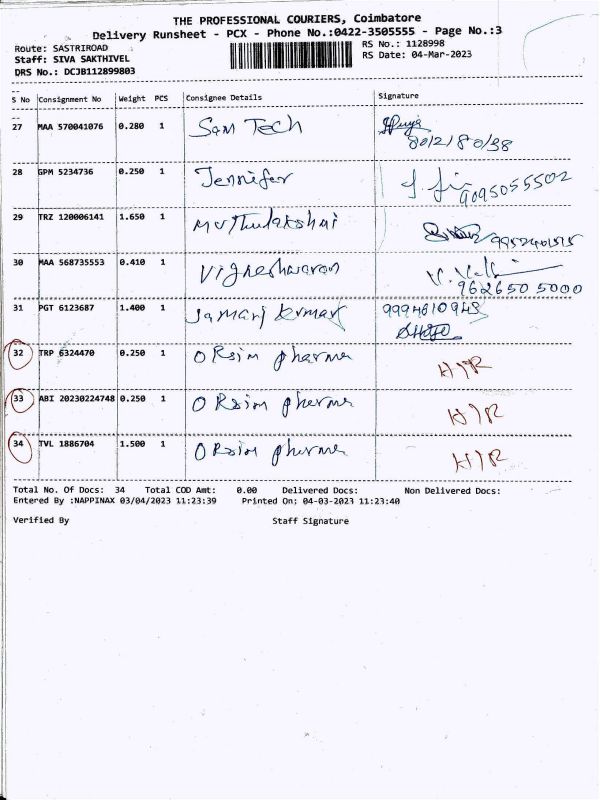 THE PROFESSIONAL COURIERS, Coimbatore
Delivery Runsheet - PCX - Phone No.:0422-3505555 - Page No.:3
Route: SASTRIROAD RS No.: 1128998
Staff: SIVA SAKTHIVEL RS Date: 04-Mar-2023
DRS No.: DCJB112899803
S No Consignment No Weight PCS Consignee Details Signature
27 MAA 570041076 0.280 1 Sam Tech
28 GPM 5234736 0.250 1 Jennifer
9095055502
29 TRZ 120006141 1.650 1 Muthulakshmi
30 MAA 568735553 0.410 1 Vigneshwaran
962650 5000
31 PGT 6123687 1.400 1 kumar 9994610948
32 TRP 6324470 0.250 1 ORsim pharma H/R
33 ABI 20230224748 0.250 1 ORsim pharma H/R
34 TVL 1886704 1.500 1 ORsim pharma H/R
Total No. Of Docs: 34 Total COD Amt: 0.00 Delivered Docs: Non Delivered Docs:
Entered By :NAPPINAX 03/04/2023 11:23:39 Printed On: 04-03-2023 11:23:40
Verified By Staff Signature